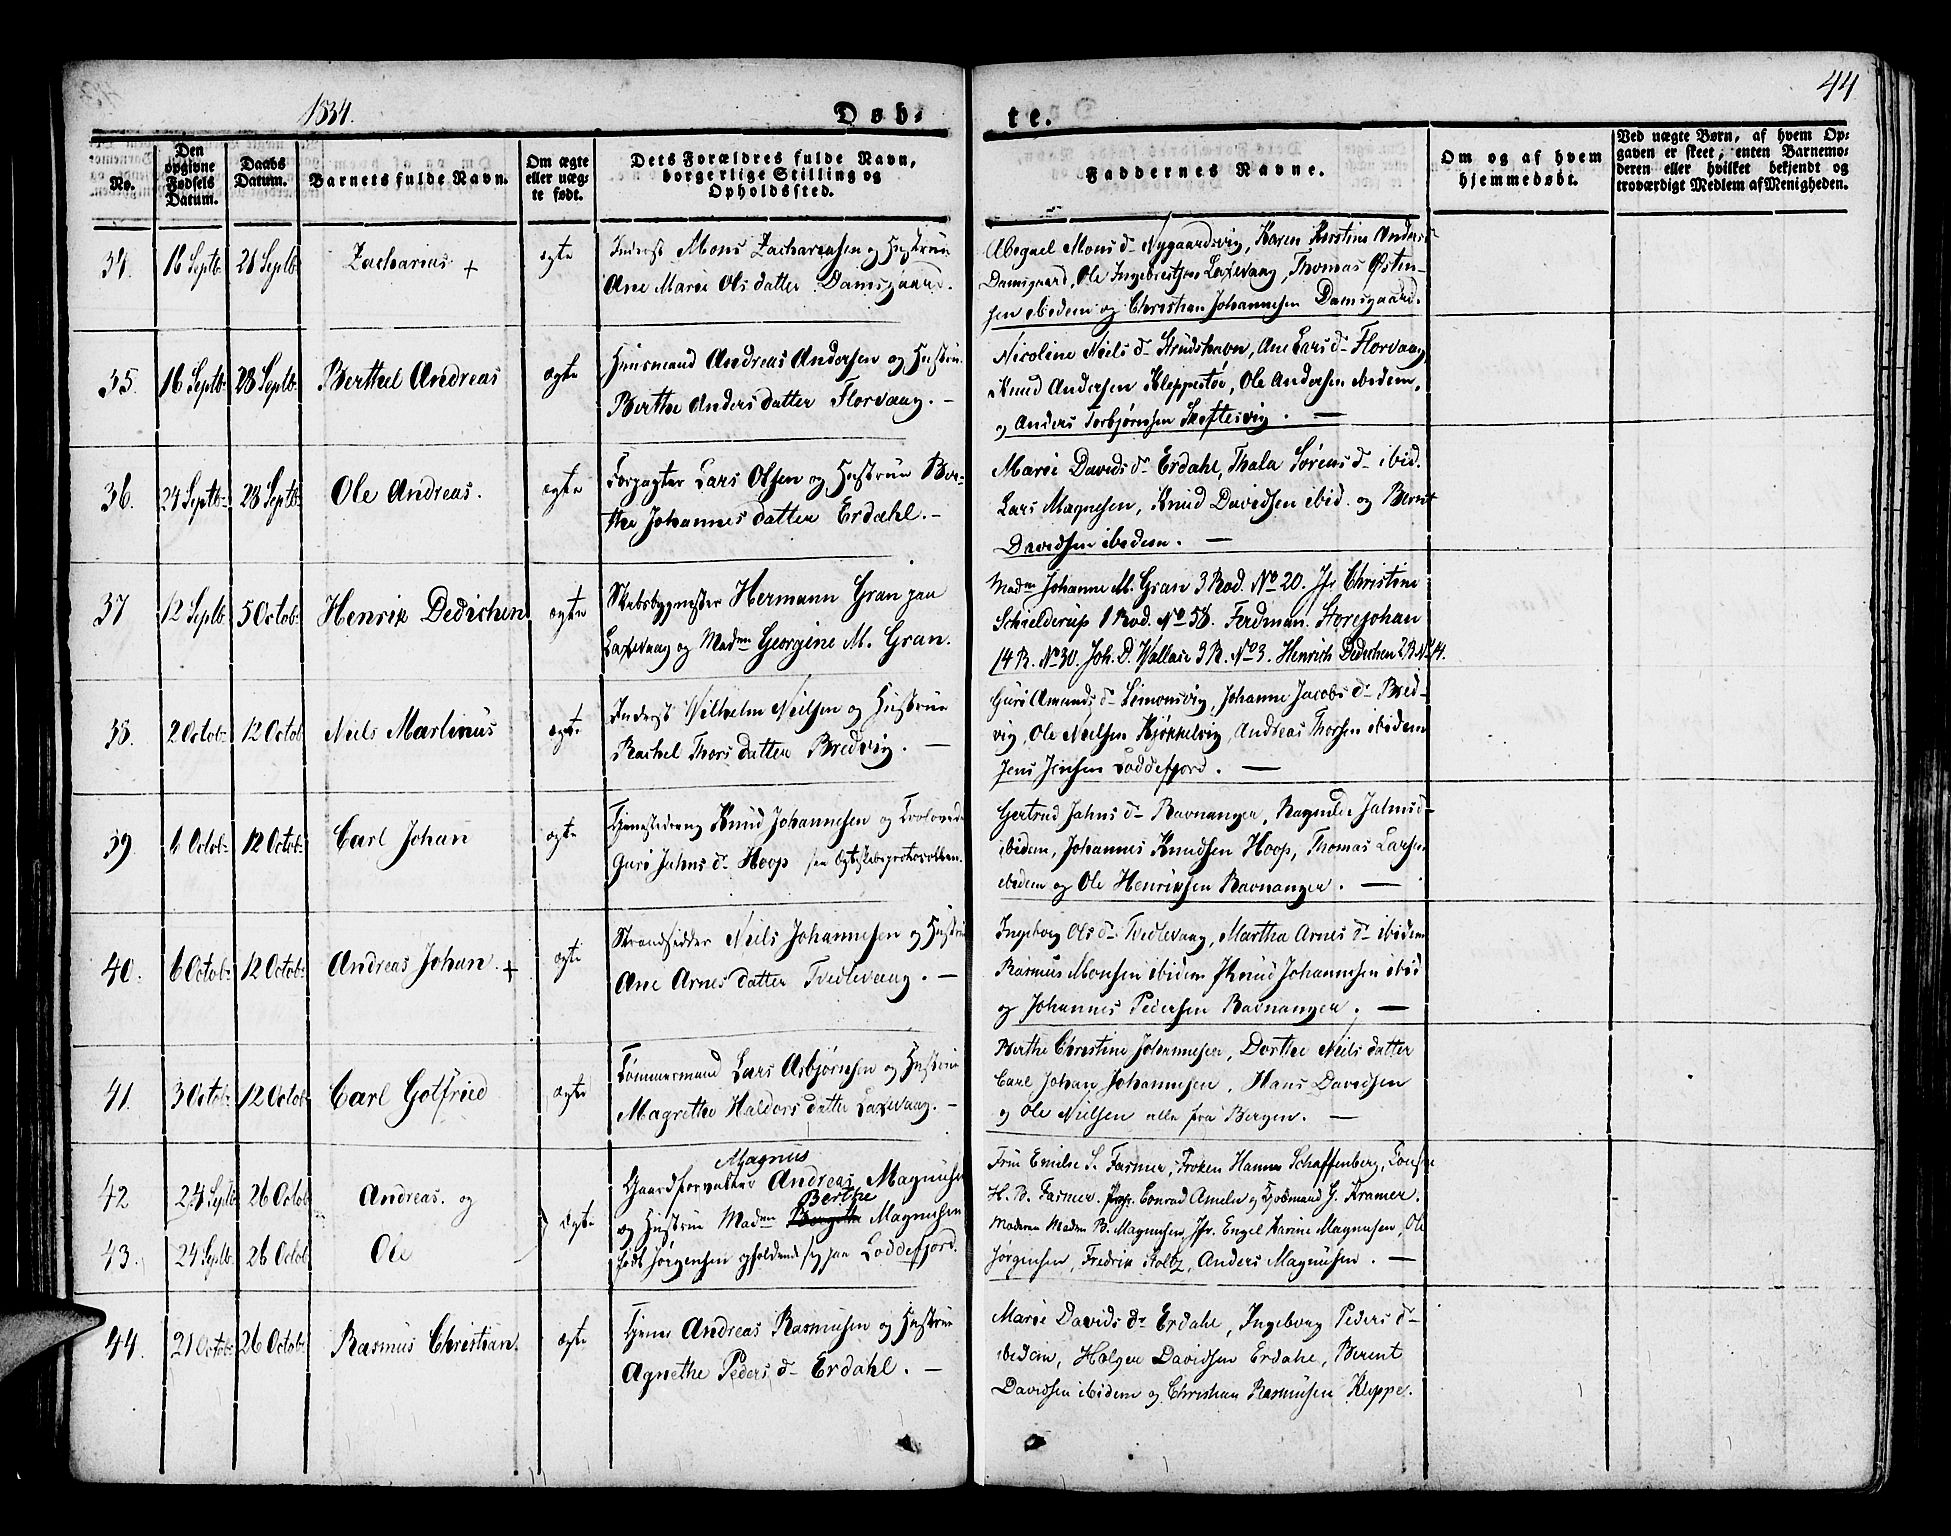 1834.
Døb-
te.
44
No.
Den opgivne Fødsels Datum.
Daabs Datum.
Barnets fulde Navn.
Om ægte eller uægte født.
Dets Forældres fulde Navn, borgerlige Stilling og Opholdssted.
Faddernes Navne.
Om og af hvem hjemmedøbt.
Ved uægte Børn, af hvem Op-
gaven er skeet, enten Barnemo-
deren eller hvilket bekjendt og
troværdigt Medlem af Menigheden.
34. 16 Septb: 21 Septb: Zacharias + ægte
Inderst Mons Zachariasen og Hustrue
Ane Marie Olsdatter Damsgaard.
Abegael Mons d. Nygaardsvig, Karen Kirstine Anders
Damsgaard, Ole Ingebrectsen Laxevaag, Thomas Østen-
sen ibidem og Christian Johannesen Damsgaard.
35. 16 Septb: 28 Septb: Berthel Andreas ægte
Huusmand Andreas Andersen og Hustrue
Berthe Andersdatter Florvaag. —
Nicoline Niels d. Strudshavn, Ane Lars d. Florvaag
Knud Andersen Kleppestø, Ole Andersen ibidem,
og Anders Torbjørnsen Skiftesvig. —
36. 24 Septb: 28 Septb: Ole Andreas. ægte
Forpagter Lars Olsen og Hustrue Ber-
the Johannesdatter Erdahl. —
Marie Davids d. Erdahl, Thala Sørens d. ibid.
Lars Magnesen, Knud Davidsen ibid. og Bernt
Davidsen ibidem. —
37 12 Septb: 5 Octob: Henrik Dedichen ægte
Skibsbygmester Hermann Gran paa
Laxevaag og Madm Georgine M. Gran.
Madm Johanne M. Gran 3 Rod. No 20. Jfr Christine
Schielderup 1 Rod. No 58. Ferdinan. Storejohan
14 R. No 30. Joh. D. Wallace 3 R. No 3. Henrich Dedichen 2 R. No 14.
38. 2 Octob: 12 Octob: Niels Martinus ægte
Inderst Vilhelm Nielsen og Hustrue
Rachel Thorsdatter Bredvig. —
Guri Amunds d. Simonsvig, Johanne Jacobs d. Bred-
vig, Ole Nielsen Kjøkkelvig, Andreas Thorsen ibidem
Jens Jensen Loddefjord. —
39. 6 Octob: 12 Octob: Carl Johan ægte
Tjenestedreng Knud Johannesen og Trolovede
Guri Jahns d. Hoop see Ægteskabsprotocollen.
Gertrud Jahns d. Ravnanger, Ragnilde Jahnsd.
ibidem, Johannes Knudsen Hoop, Thomas Larsen
ibidem og Ole Henriksen Ravnanger. —
40. 6 Octob: 12 Octob: Andreas Johan. + ægte
Strandsidder Niels Johannesen og Hustrue
Ane Arnesdatter Tvedlevaag. —
Ingeborg Ols d. Tvedlevaag, Martha Arnes d. ibidem
Rasmus Monsen ibidem Knud Johannesen ibid
og Johannes Pedersen Ravnanger. —
41. 3 Octob: 12 Octob: Carl Gotfried ægte
Tømmermand Lars Asbjørnsen og Hustrue
Magrethe Haldorsdatter Laxevaag. —
Berthe Christine Johannesen, Dorthe Nielsdatter
Carl Johan Johannesen, Hans Davidsen
og Ole Nielsen alle fra Bergen. —
42 24 Septb: 26 Octob: Andreas. og
43. 24 Septb: 26 Octob: Ole
ægte
Magnus
Gaardforvalter Andreas Magnusen
Berthe
og Hustrue Madm Magnusen
født Jørgensen opholdende sig paa Loddefjord.
Frue Emilie S. Fasmer, Frøken Hanna Schaffenberg, Consul
H. B. Fasmer. Conrad Ameln og Kjøbmand G. Kramer.
Moderen Madm B. Magnusen, Jfr. Engel Karine Magnusen, Ole
Jørgensen, Fredrik Koltz, Anders Magnusen. —
44. 21 Octob: 26 Octob: Rasmus Christian. ægte
Tjener Andreas Rasmusen og Hustrue
Agnethe Peders d. Erdahl. —
Marie Davids d. Erdahl, Ingeborg Peders d.
ibidem, Holger Davidsen Erdahl, Berent
Davidsen ibidem og Christian Rasmusen Kleppe.